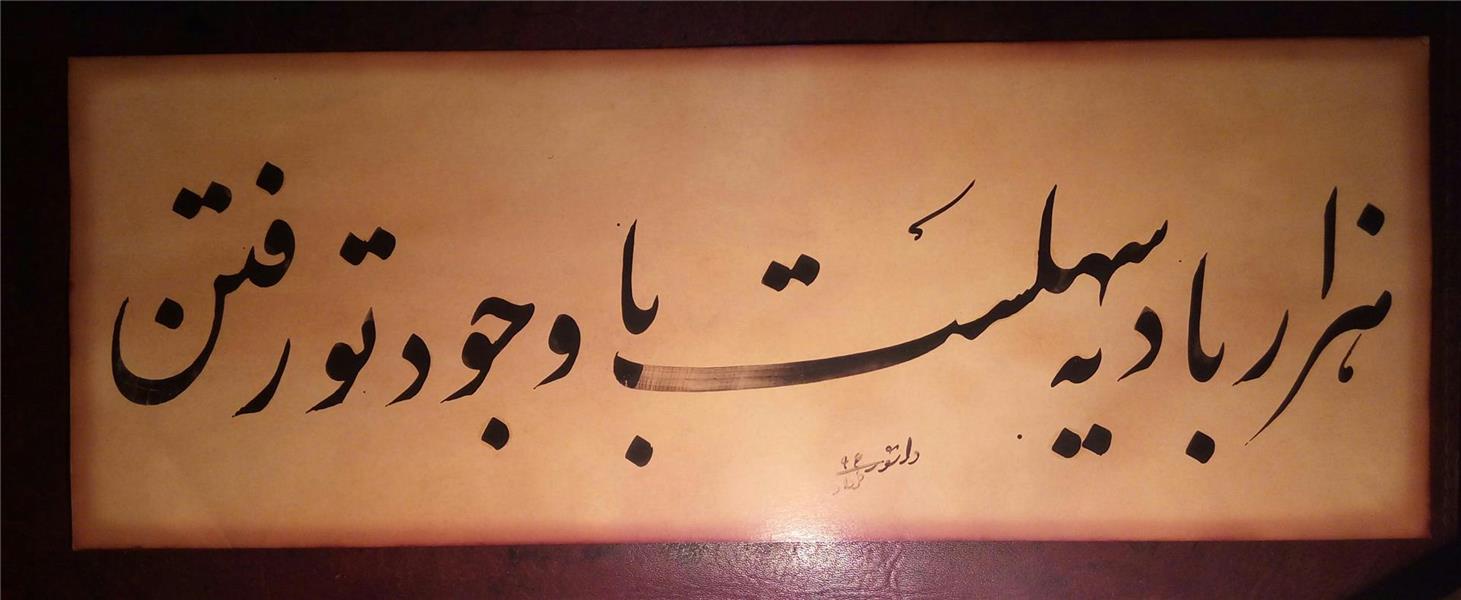 هزار بادیه سهلست با وجود تو رفتن
۹۴